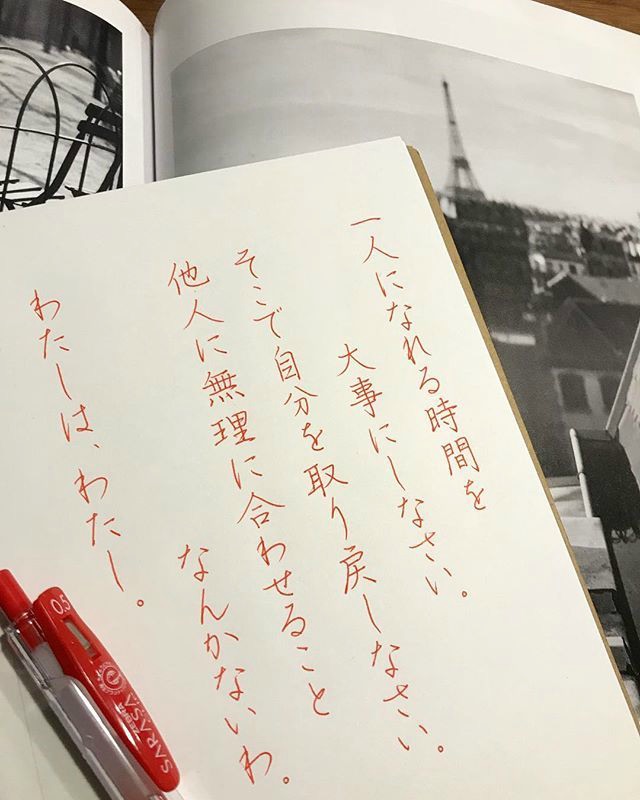 一人になれる時間を
大事にしなさい。
そこで自分を取り戻しなさい。
他人に無理に合わせること
なんかないわ。
わたしは、わたし。
0.5
ZEBRA
SARASA